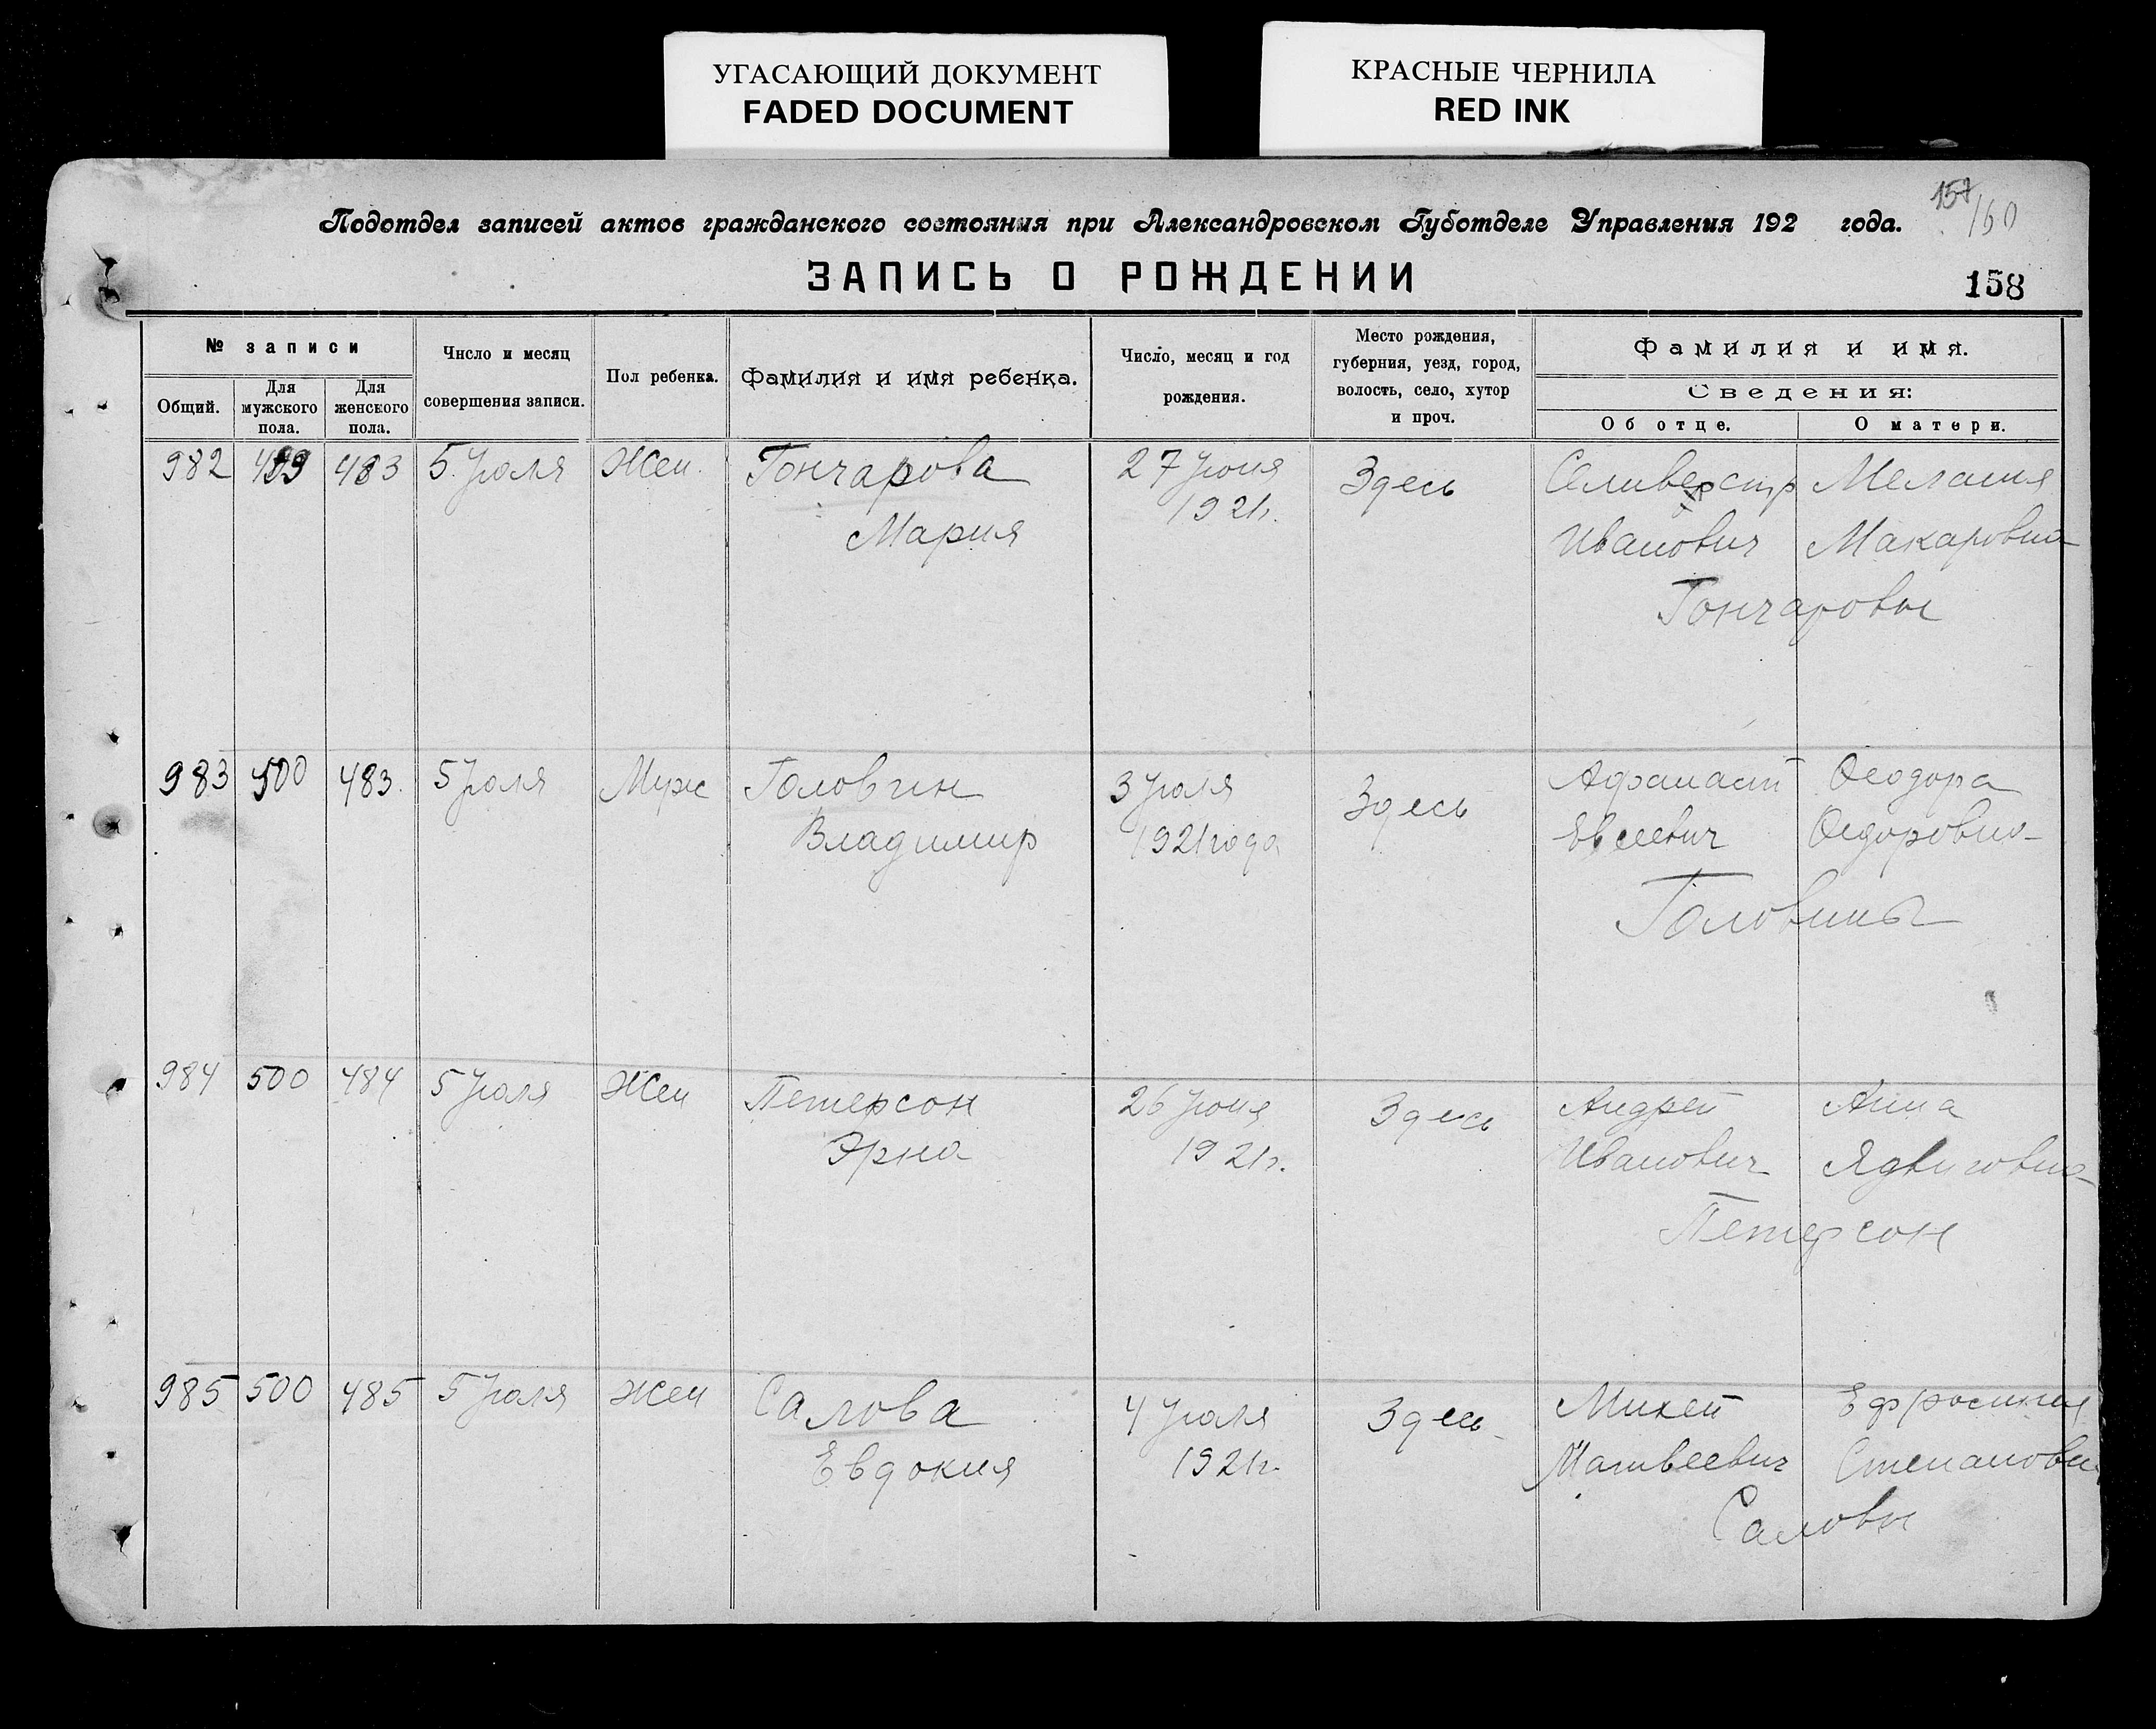 УГАСАЮЩИЙ ДОКУМЕНТ
FADED DOCUMENT
КРАСНЫЕ ЧЕРНИЛА
RED INK
157
/60
Подотдел записей актов гражданского состояния при Александровском Губотделе Управления 192 года.
ЗАПИСЬ О РОЖДЕНИИ
158
№ записи
Общий.
Для мужского пола.
Для женского пола.
Число и месяц совершения записи.
Пол ребенка.
Фамилия и имя ребенка.
Число, месяц и год рождения.
Место рождения, губерния, уезд, город, волость, село, хутор и проч.
Фамилия и имя.
Сведения:
Об отце.
О матери.
982 499 483 5 Июля Жен. Гончарова 27 Июня Здесь Селиверстр Мелания
Мария 1921г. Иванович Макаровна
Гончаровы
983 500 483. 5 Июля Муж Головин 3 Июля Здесь Афанасий Феодора
Владимир 1921 года Евсеевич Федоровна
Головины
984 500 484 5 Июля Жен Петерсон 26 Июня Здесь Андрей Анна
Эрна 1921г. Иванович Ядвиговна
Петерсон
985 500 485 5 Июля Жен Салова 4 Июля Здесь Михей Ефросиния
Евдокия 1921г. Матвеевич Степановн
Саловы